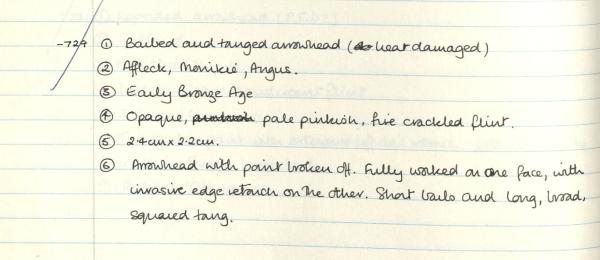 -729 ① Barbed and tanged arrowhead (heat damaged)
② Affleck, Monikie, Angus.
③ Early Bronze Age
④ Opaque, pale pinkish, fire crackled flint.
⑤ 2.4cm x 2.2cm.
⑥ Arrowhead with point broken off. Fully worked on one face, with
invasive edge retouch on the other. Short barbs and long, broad,
squared tang.